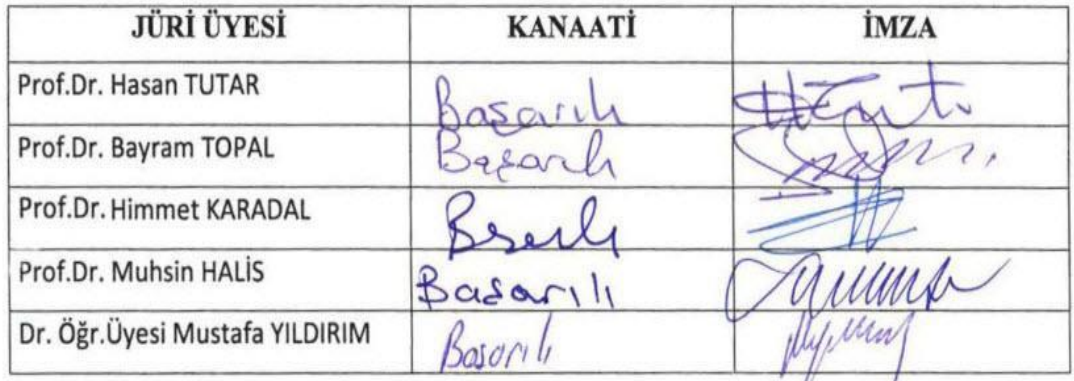 JÜRİ ÜYESİ KANAATİ İMZA
Prof.Dr. Hasan TUTAR Başarılı
Prof.Dr. Bayram TOPAL Başarılı
Prof.Dr. Himmet KARADAL Başarılı
Prof.Dr. Muhsin HALİS Başarılı
Dr. Öğr.Üyesi Mustafa YILDIRIM Başarılı